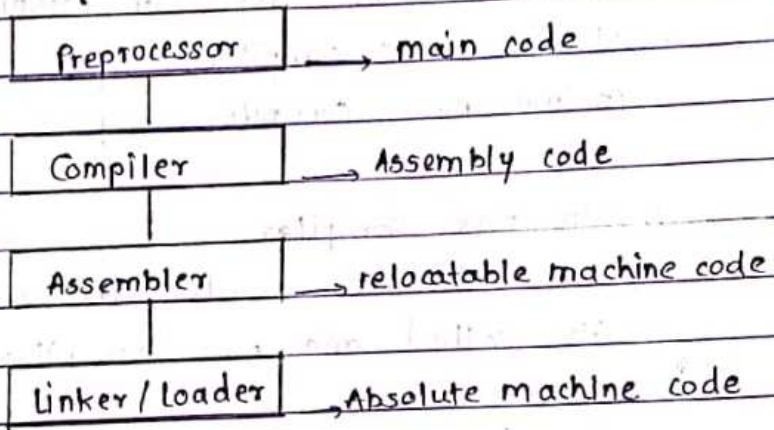 Preprocessor → main code
Compiler → Assembly code
Assembler → relocatable machine code
Linker / Loader → Absolute machine code